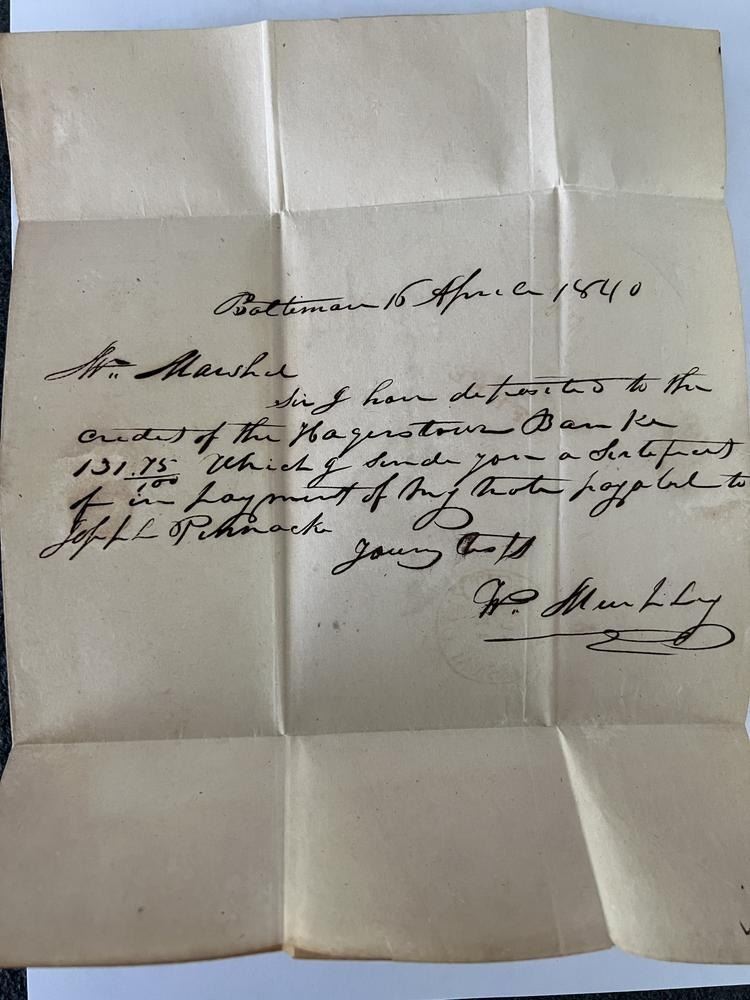 Baltimore 16 April 1840
Wm Marshel
Sir I have deposited to the
credit of the Hagerstown Bank
131.75/100 Which I sende you a Sertificet
of in payment of my note payabel to
Joseph
Yours
Wm Murphy